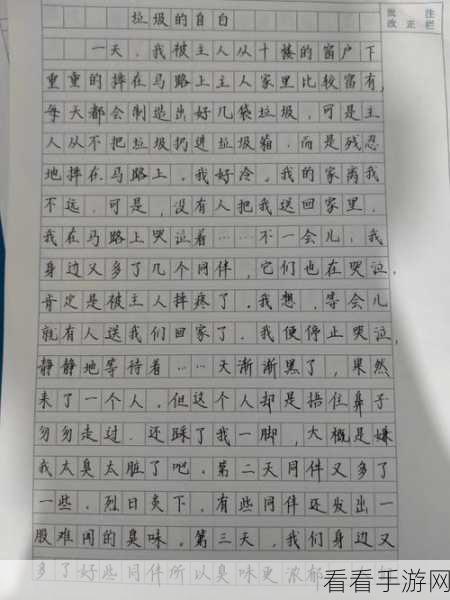 批注
改正栏
垃圾的自白
一天，我被主人从十楼的窗户下
重重的摔在马路上主人家里比较富有，
每天都会制造出好几袋垃圾，可是主
人从不把垃圾扔进垃圾箱，而是残忍
地摔在马路上。我好冷。我的家离我
不远，可是，没有人把我送回家里，
我在马路上哭泣着……不一会儿，我
身边又多了几个同伴，它们也在哭泣，
肯定是被主人摔疼了。我想，等会儿
就有人送我们回家了。我便停止哭泣，
静静地等待着……天渐渐黑了，果然
来了一个人，但这个人却是捂住鼻子
匆匆走过，还踩了我一脚，大概是嫌
我太臭太脏了吧。第二天同伴又多了
一些，烈日炎下，有些同伴还发出一
股难闻的臭味。第三天，我们身边又
多了好些同伴所以臭味更浓郁
看看手游网